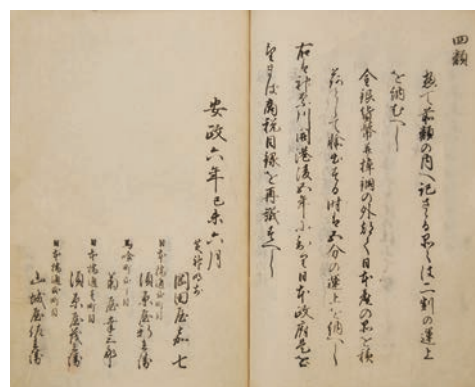 四類
惣て前類の内へ記さゝる品々は二割の運上
を納むへし
金銀貨幣并棹銅の外都て日本産の品を積
荷として輸出する時は五分の運上を納へし
右は神奈川開港後五年に至り日本政府是を
望まは商税目録を再議すへし
安政六年己未六月
芝神明前
岡田屋嘉七
日本橋通町目
須原屋新兵衛
馬喰町町目
菊屋幸三郎
日本橋通壱町目
須原屋茂兵衛
日本橋通町目
山城屋佐兵衛